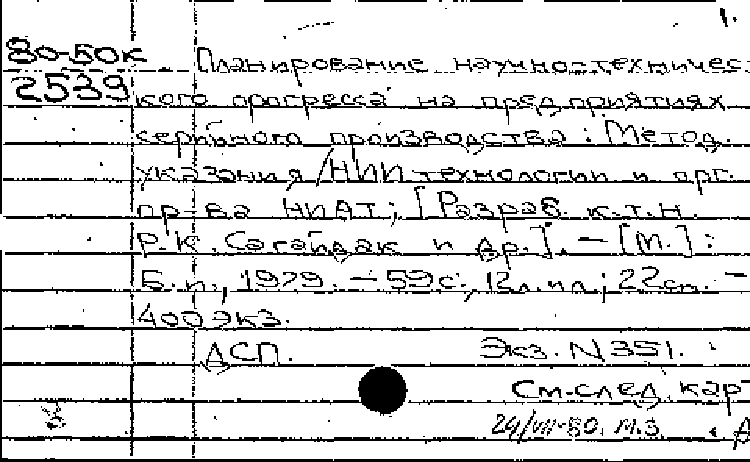 1.
80-50к Планирование научно-техничес-
2539 кого прогресса на предприятиях
серийного производства: Метод.
указания / НИИ технологии и орг.
пр-ва НИАТ; [Разраб. к.т.н.
Р.К. Сагайдак и др.]. – [М.]:
Б.и., 1979. – 59с., 12л.ил; 22см. –
400экз.
ДСП. Экз. N351.
См.след.кар
24/VII-80. М.З.